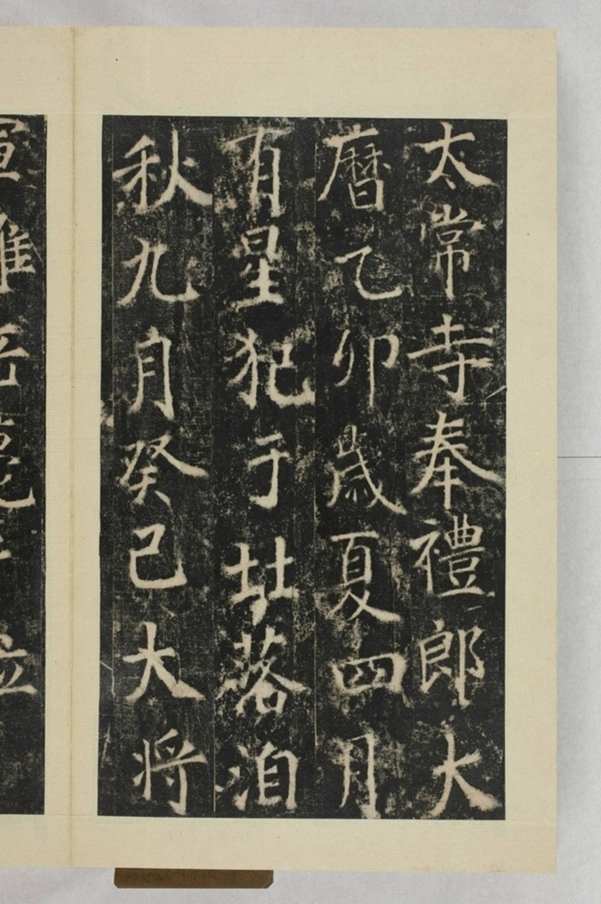 太常寺奉禮郎大
曆乙卯歲夏四月
有星犯于北落洎
秋九月癸巳大將